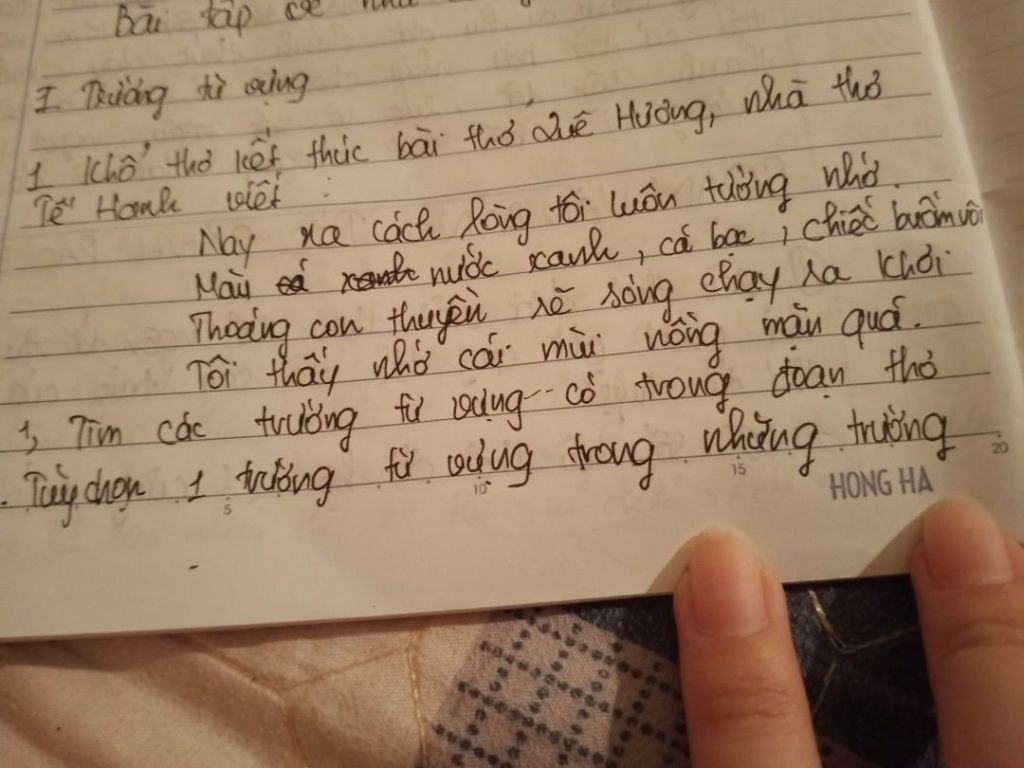 Bài tập về nhà
I. Trường từ vựng
1 Khổ thơ kết thúc bài thơ Quê Hương, nhà thơ
Tế Hanh viết :
Nay xa cách lòng tôi luôn tưởng nhớ.
Màu nước xanh, cá bạc, chiếc buồm vôi
Thoáng con thuyền rẽ sóng chạy ra khơi
Tôi thấy nhớ cái mùi nồng mặn quá.
1, Tìm các trường từ vựng có trong đoạn thơ
. Tùy chọn 1 trường từ vựng trong những trường
5 10 15 20
HONG HA